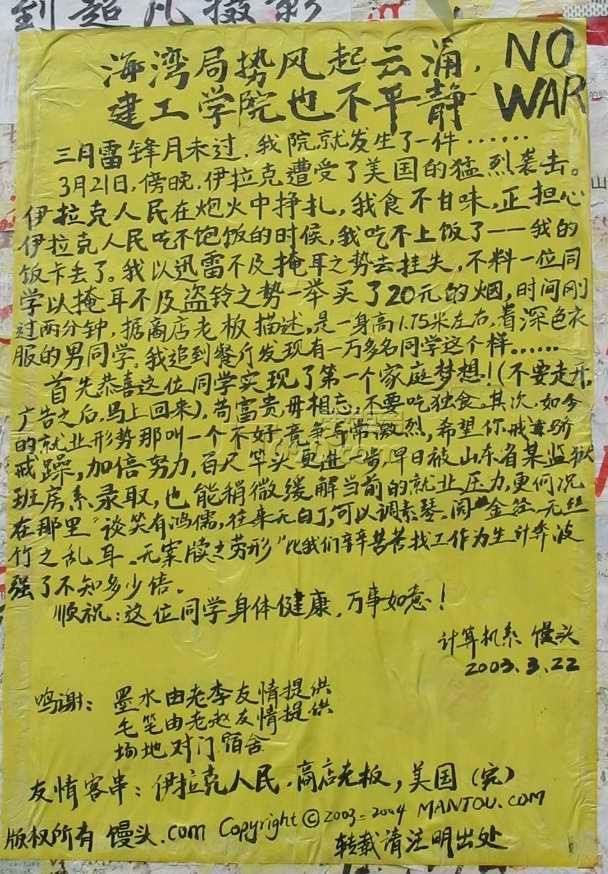 到超凡摄影
海湾局势风起云涌,
建工学院也不平静
NO
WAR
三月雷锋月未过,我院就发生了一件……
3月21日,傍晚,伊拉克遭受了美国的猛烈袭击。
伊拉克人民在炮火中挣扎,我食不甘味,正担心
伊拉克人民吃不饱饭的时候,我吃不上饭了——我的
饭卡丢了。我以迅雷不及掩耳之势去挂失,不料一位同
学以掩耳不及盗铃之势一举买了20元的烟,时间刚
过两分钟,据商店老板描述,是一身高1.75米左右,着深色衣
服的男同学。我追到餐厅发现有一万多名同学这个样……
首先恭喜这位同学实现了第一个家庭梦想!(不要走开,
广告之后,马上回来),苟富贵毋相忘,不要吃独食。其次,如今
的就业形势那叫一个不好竞争非常激烈,希望你戒骄
戒躁,加倍努力,百尺竿头更进一步,早日被山东省某监狱
班房系录取,也能稍微缓解当前的就业压力,更何况
在那里"谈笑有鸿儒,往来无白丁,可以调素琴、阅金经、无丝
竹之乱耳、无案牍之劳形"比我们辛辛苦苦找工作为生计奔波
强了不知多少倍。
顺祝:这位同学身体健康,万事如意!
计算机系 馒头
2003.3.22
鸣谢:墨水由老李友情提供
毛笔由老赵友情提供
场地对门宿舍
友情客串:伊拉克人民,商店老板,美国(完)
版权所有 馒头.com Copyright©2003=2004 MANTOU.COM
转载请注明出处